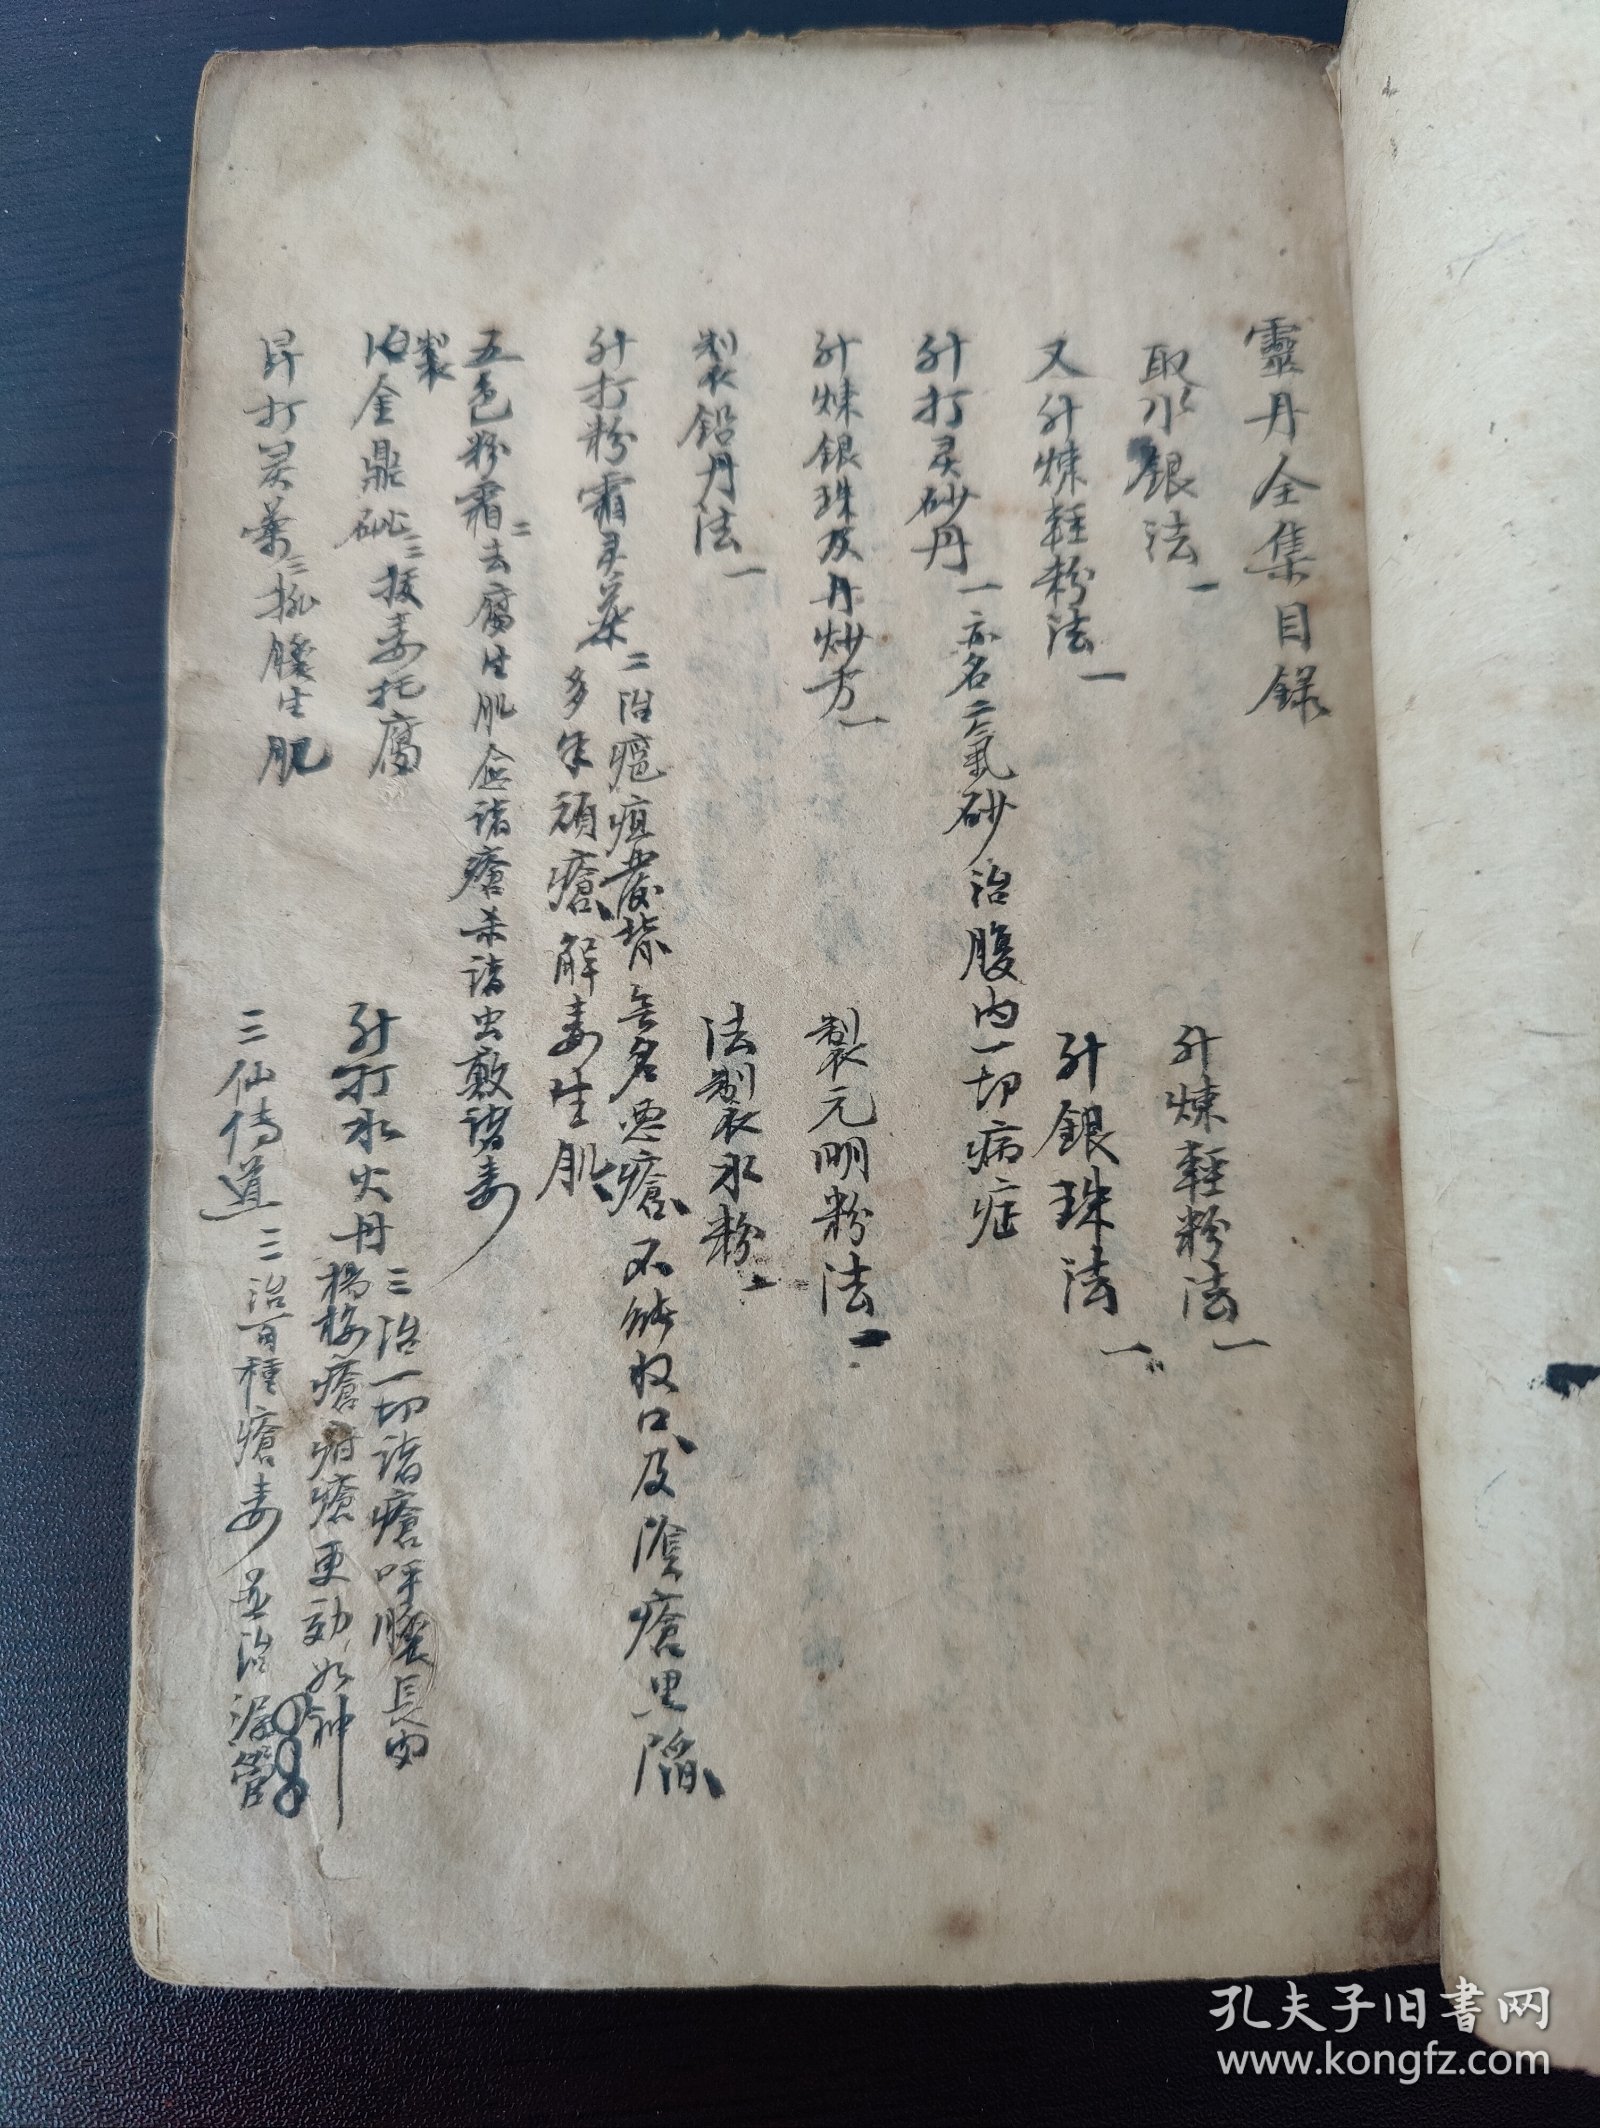 靈丹全集目錄
取水銀法一
升煉輕粉法一
又升煉輕粉法一
升銀珠法一
升打灵砂丹一亦名二氣砂治腹内一切病症
升煉銀珠及丹炒方一
製元明粉法一
製鉛丹法一
法製水粉二
升打粉霜灵藥二治瘡疽發背無名悪瘡不能收口及陰瘡黑陷
多年頑瘡解毒生肌
五色粉霜二去腐生肌合諸瘡杀諸虫敷諸毒
製
金鼎砒三拔毒托腐
升打水火丹三治一切諸瘡呼膿長肉
楊梅瘡疳瘡更効如神
昇打灵藥三排膿生肌
三仙傳道三治百種瘡毒並治漏管
孔夫子旧书网
www.kongfz.com